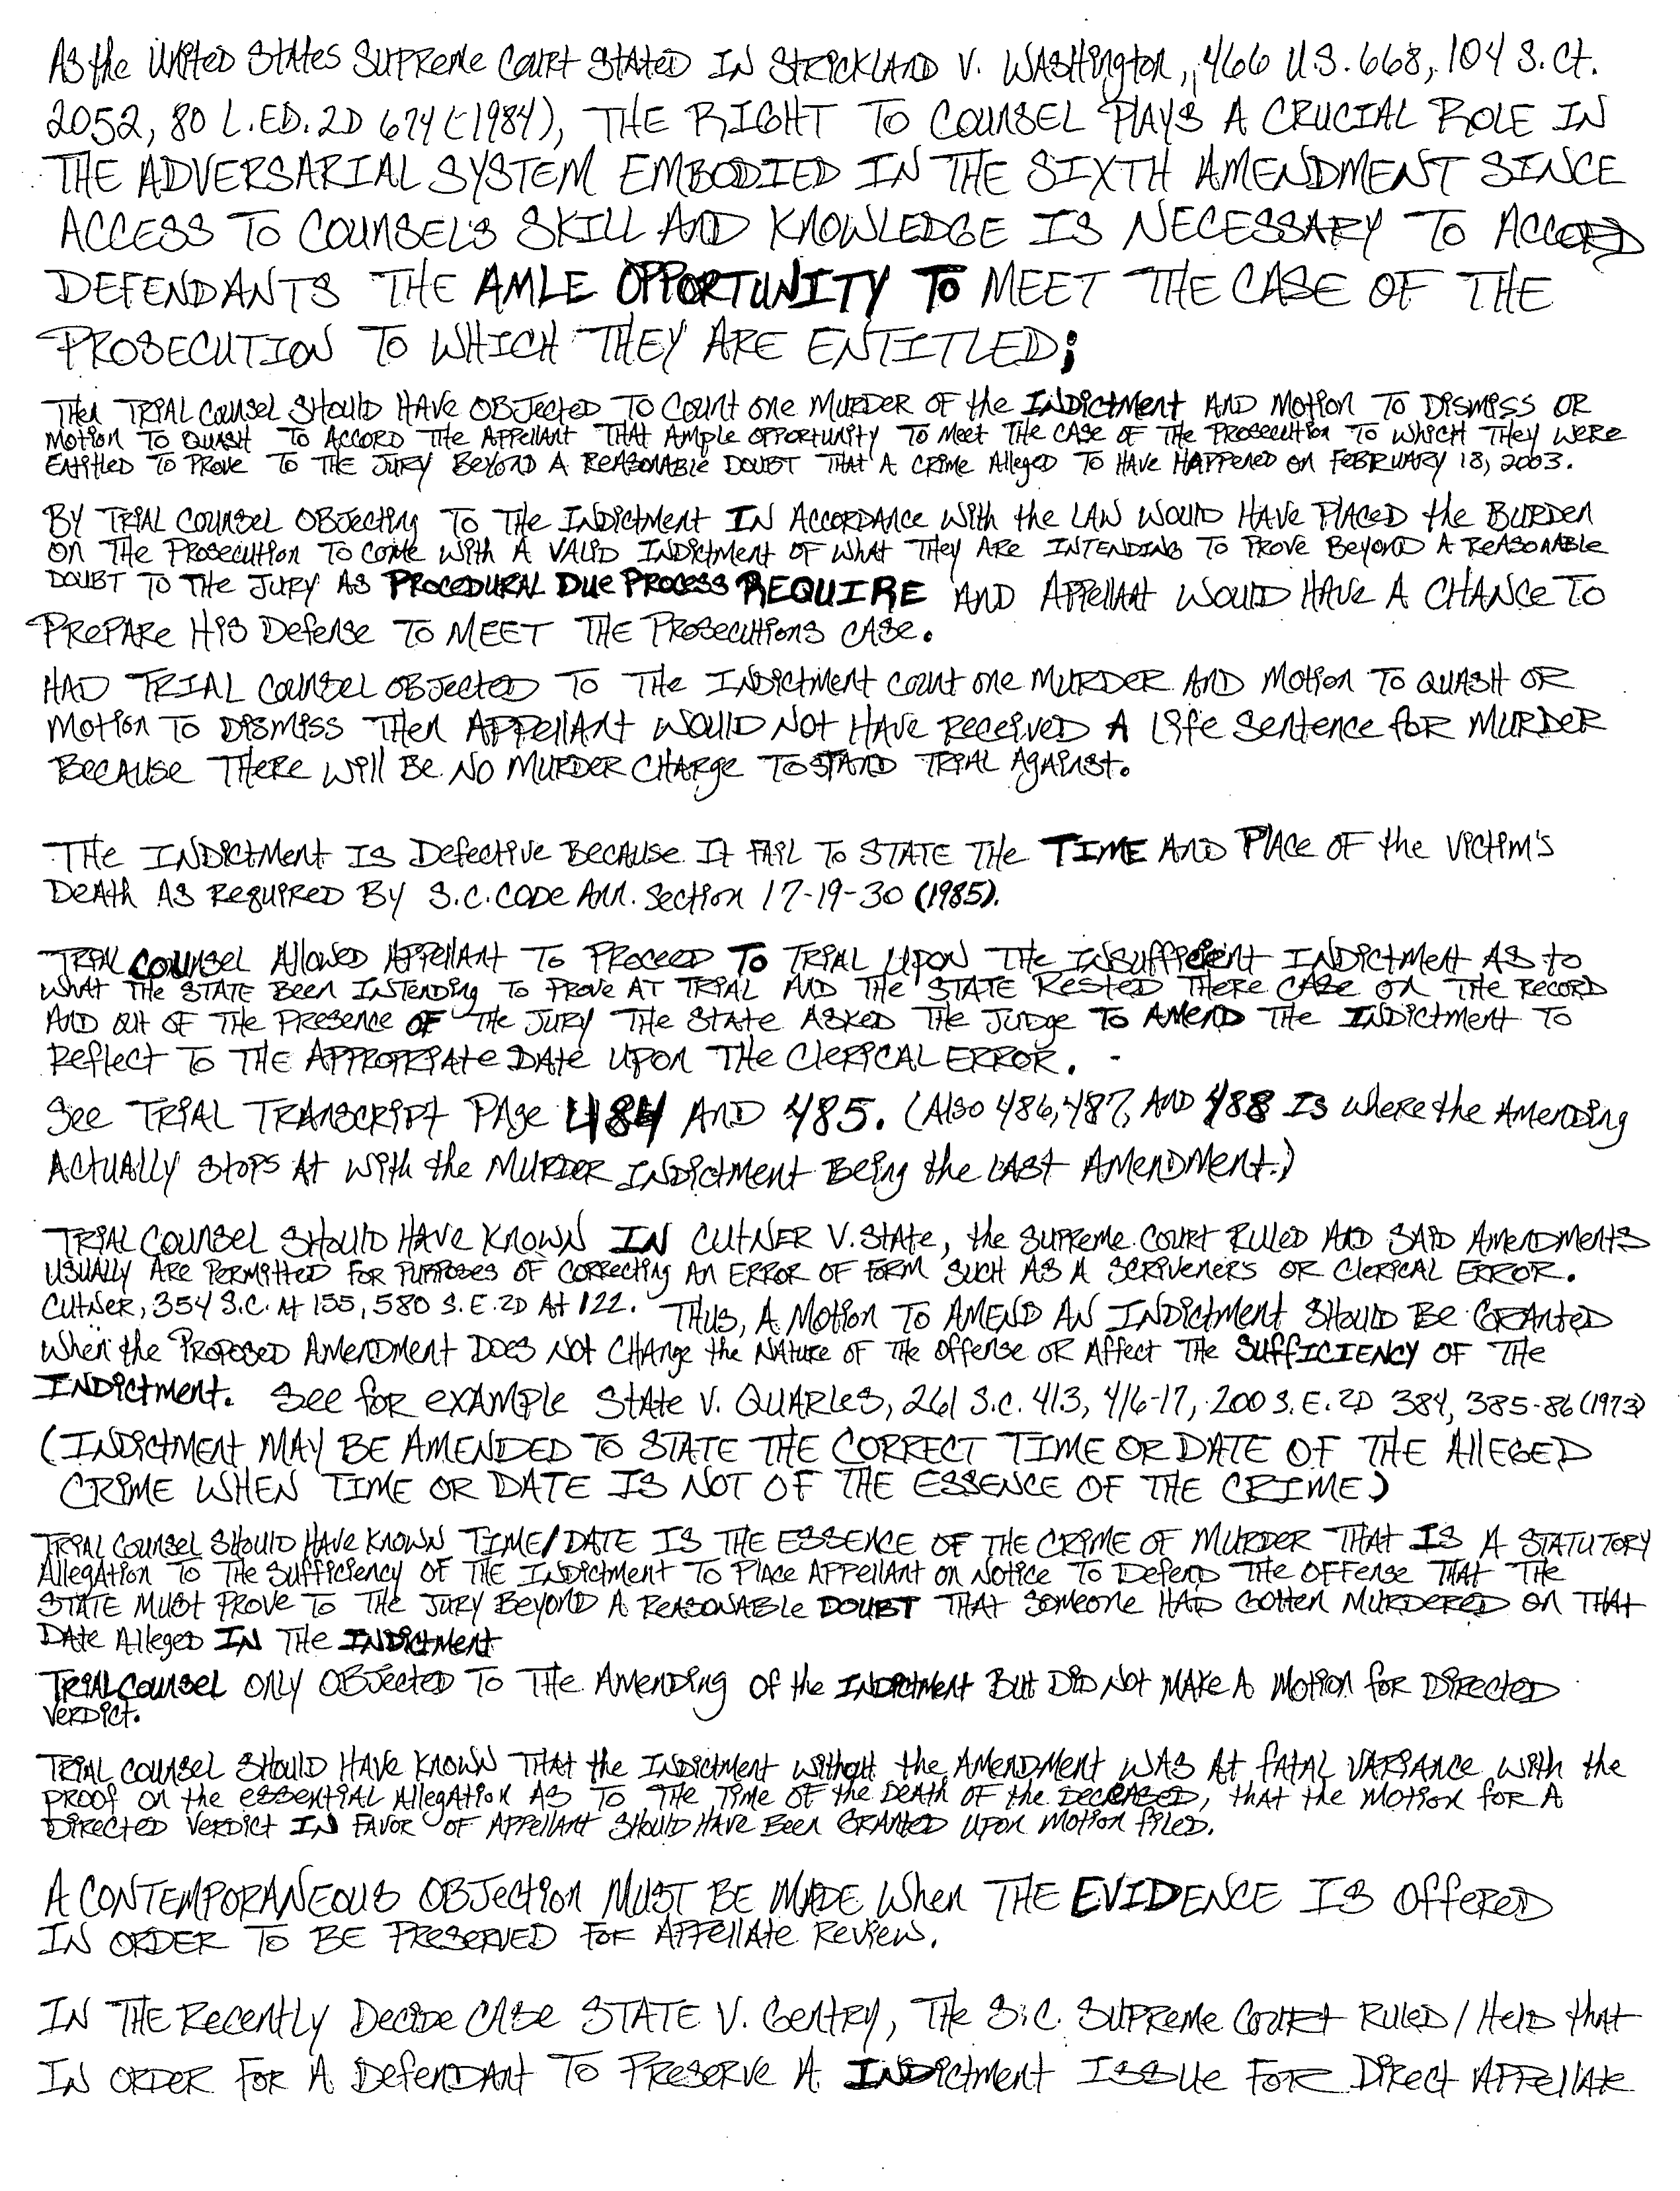 As the United States Supreme Court stated in Strickland v. Washington, 466 U.S. 668, 104 S. Ct.
2052, 80 L.Ed. 2d 674 (1984), THE RIGHT TO COUNSEL PLAYS A CRUCIAL ROLE IN
THE ADVERSARIAL SYSTEM EMBODIED IN THE SIXTH AMENDMENT SINCE
ACCESS TO COUNSEL'S SKILL AND KNOWLEDGE IS NECESSARY TO ACCORD
DEFENDANTS THE AMLE OPPORTUNITY TO MEET THE CASE OF THE
PROSECUTION TO WHICH THEY ARE ENTITLED;
Then Trial Counsel should have objected to Count one Murder of the Indictment and Motion to Dismiss or
Motion to Quash to accord the Appellant that ample opportunity to meet the case of the Prosecution to which they were
entitled to prove to the jury beyond a reasonable doubt that a crime alleged to have happened on February 18, 2003.
By Trial Counsel objecting to the Indictment in accordance with the law would have placed the burden
on the Prosecution to come with a valid indictment of what they are intending to prove beyond a reasonable
doubt to the jury as PROCEDURAL DUE PROCESS REQUIRE and Appellant would have a chance to
prepare his defense to meet the Prosecutions case.
Had Trial Counsel objected to the Indictment count one Murder and Motion to Quash or
Motion to Dismiss then Appellant would not have received a life sentence for Murder
because there will be no Murder charge to stand trial against.
The Indictment is defective because it fail to state the TIME and Place of the victim's
death as required by S.C. Code Ann. Section 17-19-30 (1985).
Trial Counsel allowed Appellant to proceed to trial upon the insufficient indictment as to
what the State been intending to prove at trial and the State rested there case on the record
and out of the presence of the jury the State asked the Judge to amend the Indictment to
reflect to the appropriate date upon the clerical error. -
See Trial Transcript Page 484 and 485. (Also 486, 487, and 488 is where the Amending
actually stops at with the Murder Indictment being the last Amendment.)
Trial Counsel should have known in Cutner v. State, the Supreme Court ruled and said Amendments
usually are permitted for purposes of correcting an error of form such as a scriveners or clerical error.
Cutner, 354 S.C. at 155, 580 S.E.2d at 122. Thus, a Motion to Amend an Indictment should be granted
when the proposed Amendment does not change the nature of the offense or affect the SUFFICIENCY of the
Indictment. See for example State v. Quarles, 261 S.C. 413, 416-17, 200 S.E.2d 384, 385-86 (1973)
(INDICTMENT MAY BE AMENDED TO STATE THE CORRECT TIME OR DATE OF THE ALLEGED
CRIME WHEN TIME OR DATE IS NOT OF THE ESSENCE OF THE CRIME)
Trial Counsel should have known TIME/DATE is the essence of the crime of murder that is a statutory
allegation to the sufficiency of the indictment to place Appellant on notice to defend the offense that the
State must prove to the jury beyond a reasonable DOUBT that someone had gotten murdered on that
date alleged in the Indictment
Trial Counsel only objected to the Amending of the Indictment but did not make a Motion for Directed
Verdict.
Trial Counsel should have known that the Indictment without the Amendment was at fatal variance with the
proof on the essential allegation as to the time of the death of the deceased, that the Motion for a
Directed Verdict in favor of Appellant should have been granted upon motion filed.
A CONTEMPORANEOUS OBJECTION MUST BE MADE when THE EVIDENCE IS offered
IN ORDER TO BE PRESERVED FOR Appellate Review.
In the recently decide case State v. Gentry, the S.C. Supreme Court ruled/held that
in order for a defendant to preserve a Indictment issue for direct appellate